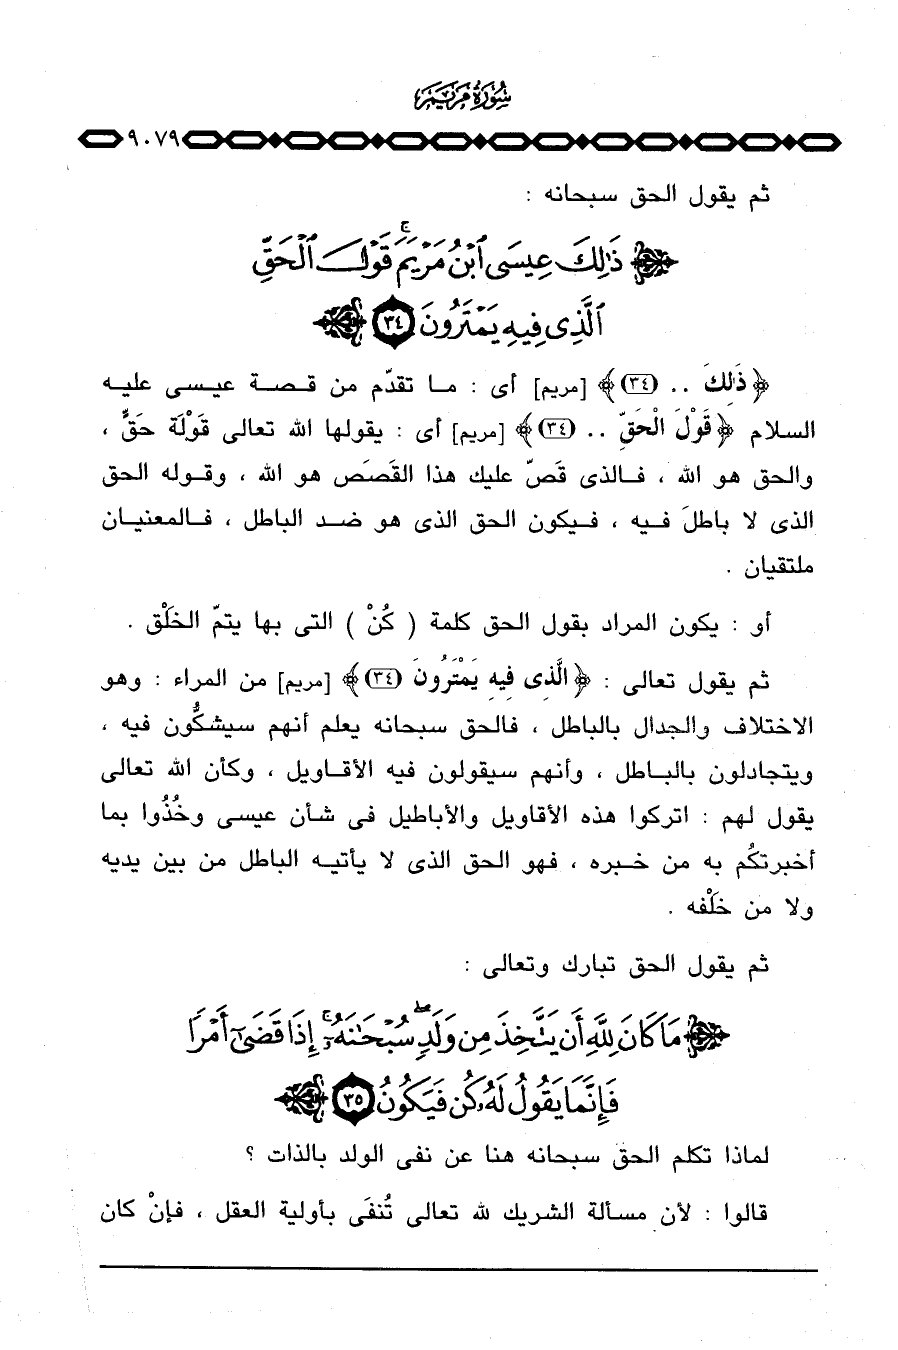 سُورَةُ مَرْيَمَ
٩٠٧٩
ثم يقول الحق سبحانه :
﴿ ذَٰلِكَ عِيسَى ٱبْنُ مَرْيَمَ ۚ قَوْلَ ٱلْحَقِّ
ٱلَّذِى فِيهِ يَمْتَرُونَ ٣٤ ﴾
﴿ذَٰلِكَ .. (٣٤)﴾ [مريم] أى : ما تقدّم من قصة عيسى عليه
السلام ﴿قَوْلَ الْحَقِّ .. (٣٤)﴾ [مريم] أى : يقولها الله تعالى قَوْلة حَقٍّ ،
والحق هو الله ، فالذى قصّ عليك هذا القَصَص هو الله ، وقوله الحق
الذى لا باطلَ فيه ، فيكون الحق الذى هو ضد الباطل ، فالمعنيان
ملتقيان .
أو : يكون المراد بقول الحق كلمة ( كُنْ ) التى بها يتمّ الخلْق .
ثم يقول تعالى : ﴿الَّذِى فِيهِ يَمْتَرُونَ (٣٤)﴾ [مريم] من المراء : وهو
الاختلاف والجدال بالباطل ، فالحق سبحانه يعلم أنهم سيشكُّون فيه ،
ويتجادلون بالباطل ، وأنهم سيقولون فيه الأقاويل ، وكأن الله تعالى
يقول لهم : اتركوا هذه الأقاويل والأباطيل فى شأن عيسى وخُذُوا بما
أخبرتكُم به من خبره ، فهو الحق الذى لا يأتيه الباطل من بين يديه
ولا من خلْفه .
ثم يقول الحق تبارك وتعالى :
﴿ مَا كَانَ لِلَّهِ أَن يَتَّخِذَ مِن وَلَدٍ ۖ سُبْحَٰنَهُۥٓ ۚ إِذَا قَضَىٰٓ أَمْرًا
فَإِنَّمَا يَقُولُ لَهُۥ كُن فَيَكُونُ ٣٥ ﴾
لماذا تكلم الحق سبحانه هنا عن نفى الولد بالذات ؟
قالوا : لأن مسألة الشريك لله تعالى تُنفَى بأولية العقل ، فإنْ كان